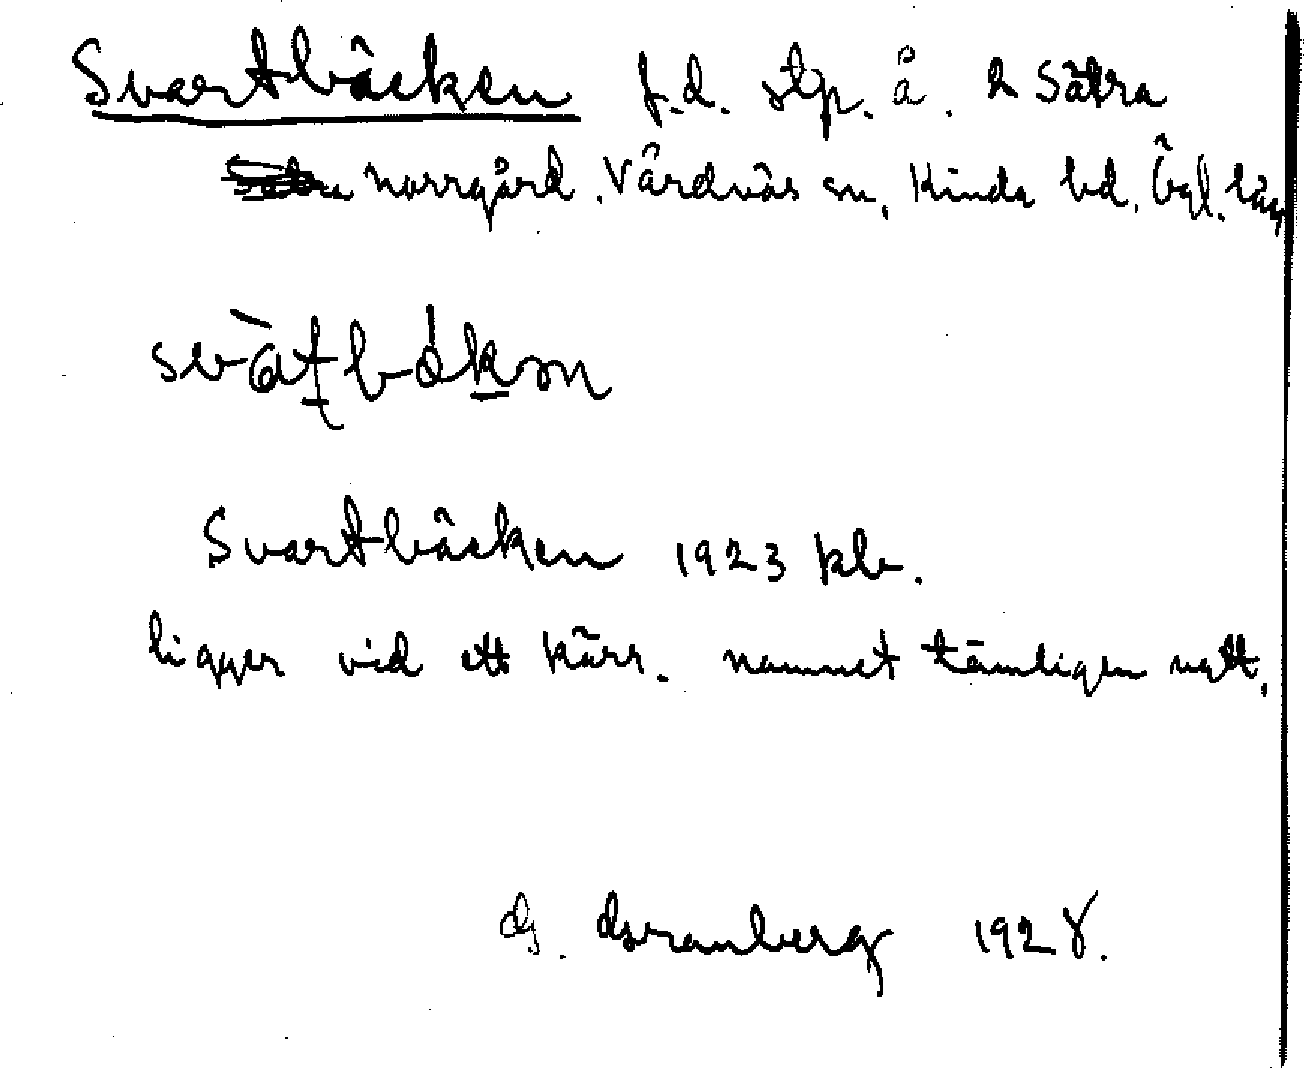 Svartbäcken f.d. stp. å. 2 Sätra
norrgård. Vårdnäs sn. Kinda hd. Ögl. län
Svartbäcken 1923 klv.
ligger vid ett kärr. namnet tämligen nytt.
G. Granberg 1928.